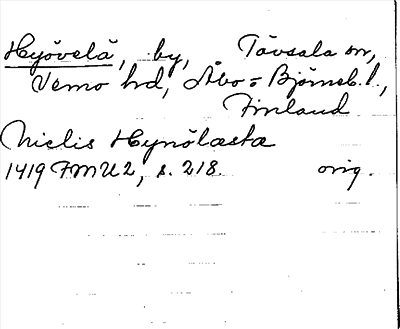 Hyövelä, by, Tövsala sn,
Vemo hd, Åbo = Björneb. l.,
Finland
Nielis Hynölasta
1419 FMU 2, s. 218. orig.